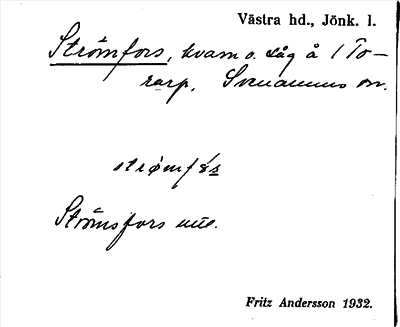 Västra hd., Jönk. l.
Strömfors, kvarn o. såg å 1 To-
rarp, Svenarums sn.
strømfòs̱
Strömsfors mtl.
Fritz Andersson 1932.